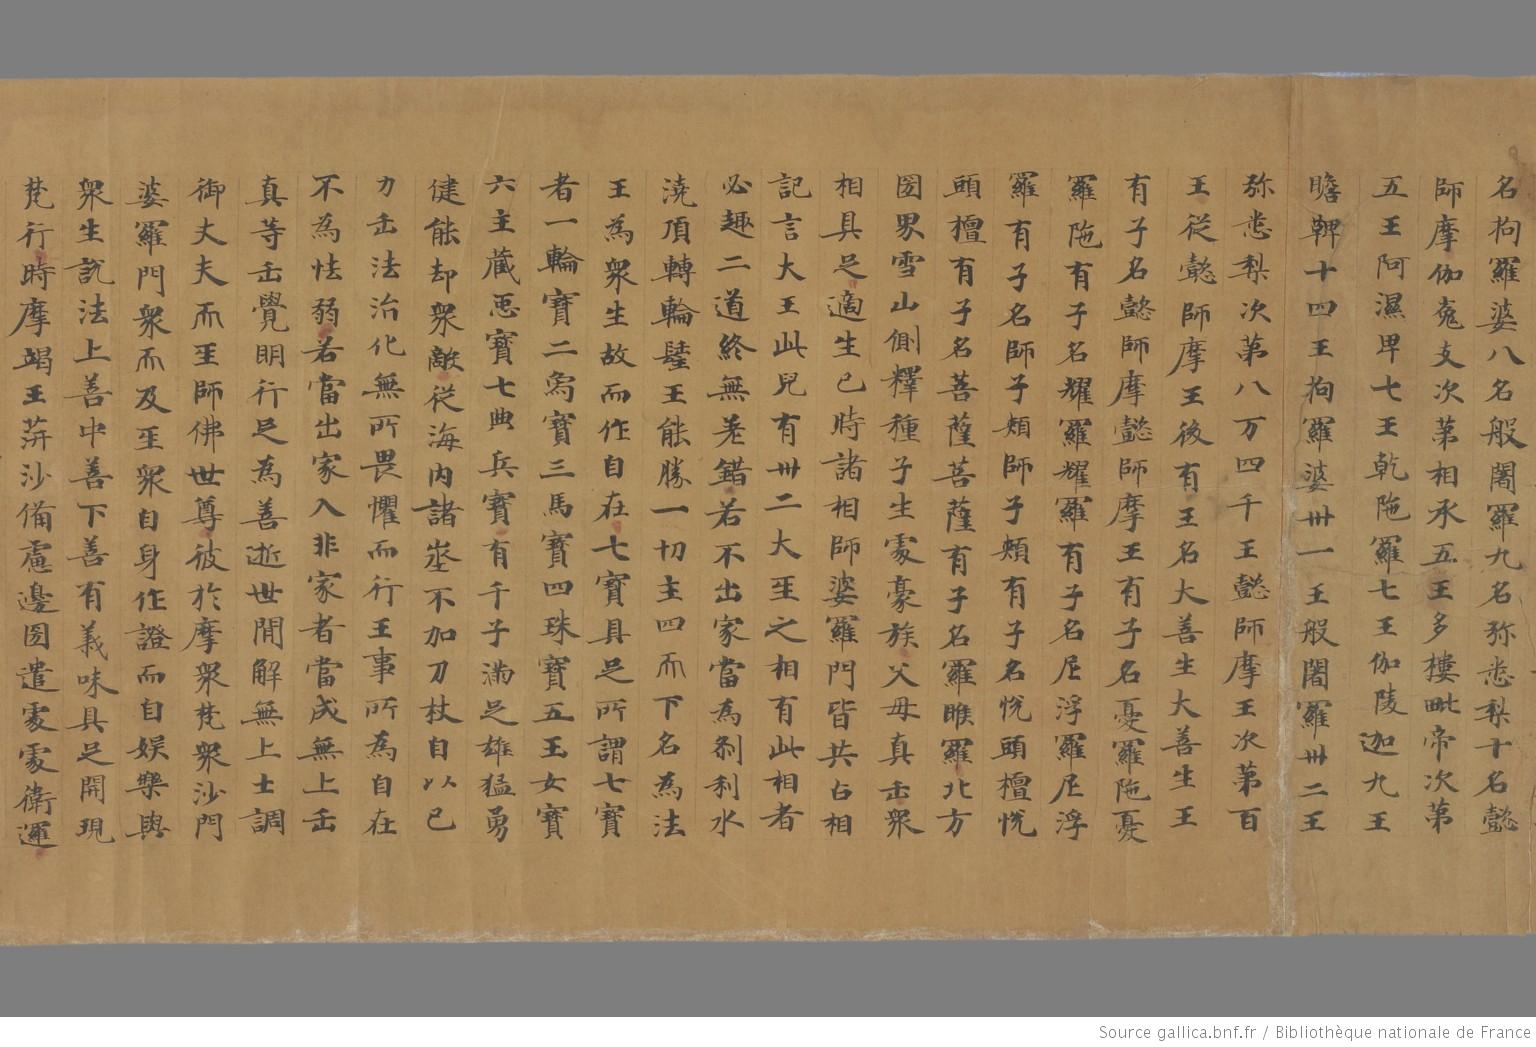 名拘羅婆八名般闍羅九名弥悉梨十名懿
師摩伽㝹支次第相承五王多樓毗帝次第
五王阿濕卑七王乾陁羅七王伽陵迦九王
瞻鞞十四王拘羅婆卅一王般闍羅卅二王
弥悉梨次第八万四千王懿師摩王次第百
王從懿師摩王後有王名大善生大善生王
有子名懿師摩懿師摩王有子名憂羅陁憂
羅陁有子名耀羅耀羅有子名尼浮羅尼浮
羅有子名師子頰師子頰有子名悅頭檀悅
頭檀有子名菩薩菩薩有子名羅睺羅北方
國界雪山側釋種子生處豪族父母真𠙺衆
相具足適生已時諸相師婆羅門皆共占相
記言大王此兒有卅二大𤯔之相有此相者
必趣二道終無差錯若不出家當為剎利水
澆頂轉輪𨤲王能勝一切主四而下名為法
王為衆生故而作自在七寶具足所謂七寶
者一輪寶二為寶三馬寶四珠寶五王女寶
六主藏𢙣寶七典兵寶有千子滿足雄猛勇
健能却衆敵從海內諸埊不加刀杖自以已
力𠙺法治化無所畏懼而行王事所為自在
不為怯弱若當出家入非家者當成無上𠙺
真等𠙺覺明行足為善逝世間解無上士調
御丈夫而𤯔師佛世尊彼於摩衆梵衆沙門
婆羅門衆而及𤯔衆自身作證而自娛樂與
衆生說法上善中善下善有義味具足開現
梵行時摩竭王蓱沙備慮邊國遣處處衛邏